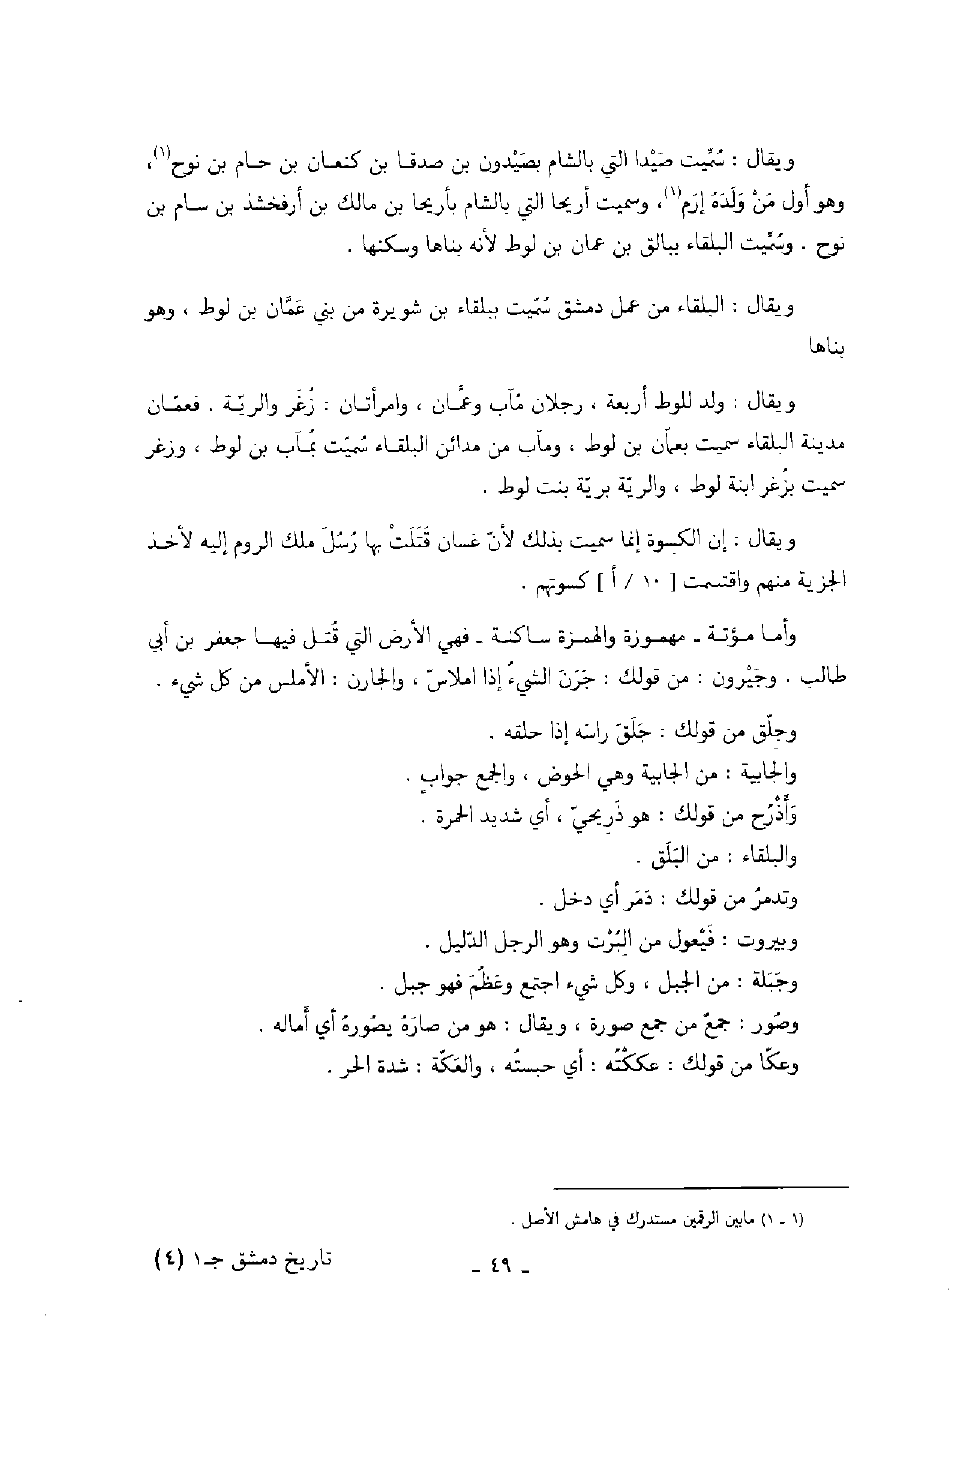 ويقال : سُمِّيت صَيْدا التي بالشام بصَيْدون بن صدقا بن كنعـان بن حـام بن نوح(١)،
وهو أول مَنْ وَلَدَهُ إرَم(١)، وسميت أريحا التي بالشام بأريحا بن مالك بن أرفخشذ بن سـام بن
نوح . وسُمِّيت البلقاء ببالق بن عمان بن لوط لأنه بناها وسكنها .
ويقال : البلقاء من عمل دمشق سُمّيت ببلقاء بن شويرة من بني عَمَّان بن لوط ، وهو
بناها
ويقال : ولد للوط أربعة ، رجلان مُآب وعمَّـان ، وامرأتـان : زُغَر والريّـة . فعمّـان
مدينة البلقاء سميت بعمآن بن لوط ، ومآب من مدائن البلقـاء سُميّت بمُـآب بن لوط ، وزغر
سميت بزُغر ابنة لوط ، والريّة بريّة بنت لوط .
ويقال : إن الكسوة إنما سميت بذلك لأنّ غسان قَتَلَتْ بها رُسُلَ ملك الروم إليه لأخـذ
الجزية منهم واقتسمت [ ١٠ / أ ] كسوتهم .
وأمـا مـؤتـة ـ مهمـوزة والهمـزة سـاكنـة ـ فهي الأرض التي قُتـل فيهـا جعفر بن أبي
طالب . وجَيْرون : من قولك : جَرَنَ الشيءُ إذا املاسّ ، والجارن : الأملس من كل شيء .
وجلّق من قولك : جَلَقَ راسَه إذا حلقه .
والجابية : من الجابية وهي الحوض ، والجمع جوابٍ .
وَأَذْرُح من قولك : هو ذَرِيحيّ ، أي شديد الحمرة .
والبلقاء : من البَلَق .
وتدمرُ من قولك : دَمَر أي دخل .
وبيروت : فَيْعول من البُرْت وهو الرجل الدّليل .
وجَبَلة : من الجبل ، وكل شيء اجتمع وعَظُمَ فهو جبل .
وصُور : جمعٌ من جمع صورة ، ويقال : هو من صارَهُ يصُورهُ أي أماله .
وعكّا من قولك : عككْتُه : أي حبستُه ، والعَكّة : شدة الحر .
(١ ـ ١) مابين الرقمين مستدرك في هامش الأصل .
ـ ٤٩ ـ
تاريخ دمشق جـ١ (٤)